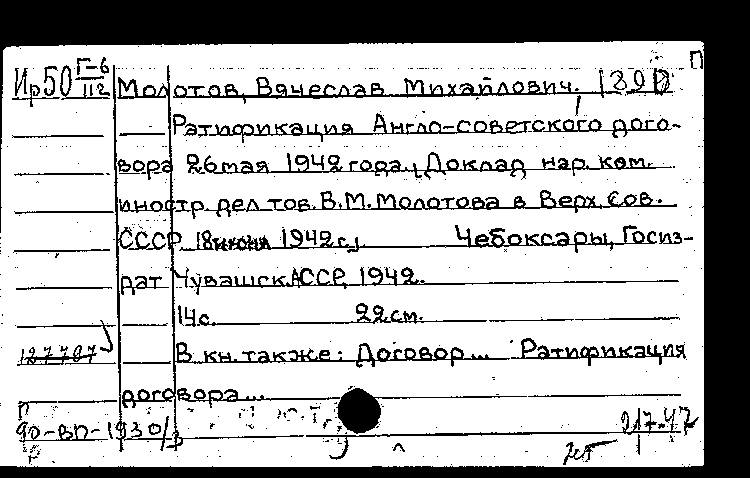 П
Ир50 Г-6/112 Молотов, Вячеслав Михайлович. 1890
Ратификация Англо-советского дого-
вора 26 мая 1942 года. [Доклад нар. ком.
иностр. дел тов. В.М. Молотова в Верх. Сов.
СССР 18 июня 1942 г.]. Чебоксары, Госиз-
дат Чувашск. АССР, 1942.
14с. 22см.
127707 В кн. также: Договор... Ратификация
договора...
90-ВП-1930/3 217-47